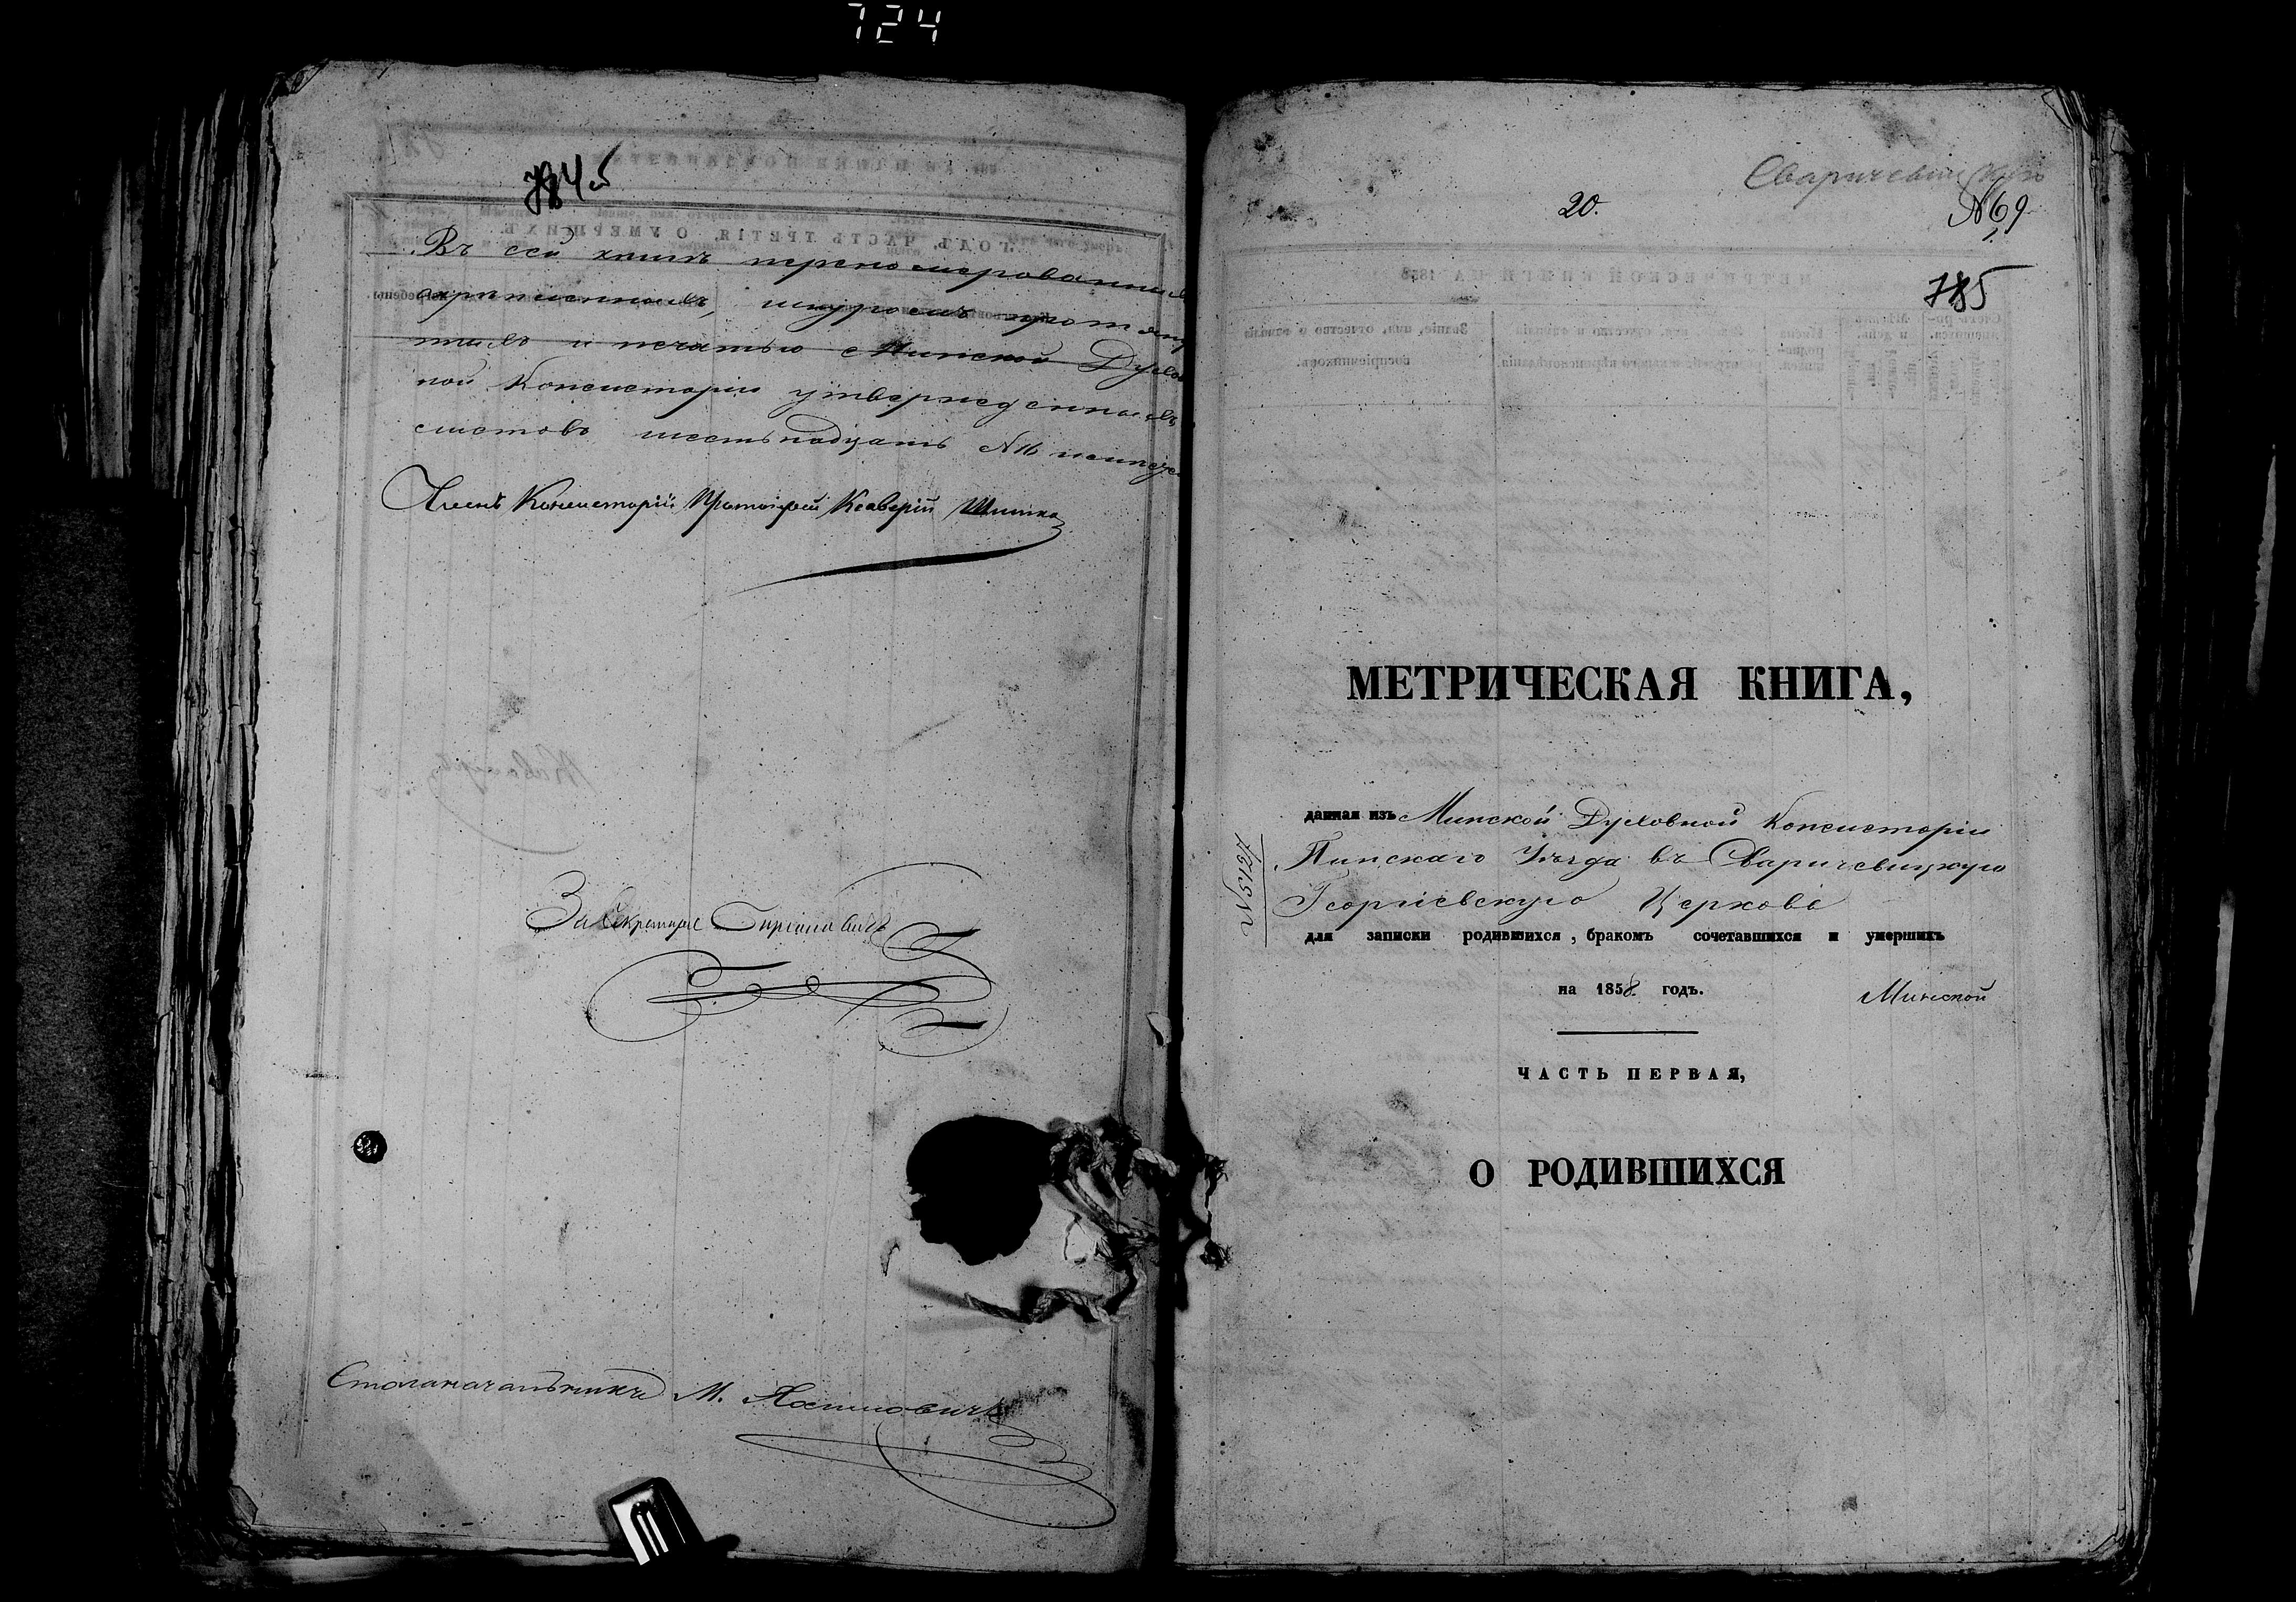 724
784об
Въ сей книгѣ перенумерованныхъ
скрепленныхъ, шнуромъ протяну
тыхъ и печатью Минской Духов
ной Консисторіи утвержденныхъ
листовъ шестьнадцать №16
Членъ Консисторіи Протоіерей Ксаверій
За Секретаря
Столоначальникъ М.
Сваричевиц
20.
№69
1.
785
МЕТРИЧЕСКАЯ КНИГА,
данная изъ Минской Духовной Консисторіи
Пинскаго Уѣзда въ Сваричевицкую
Георгіевскую Церковь
№5127
для записки родившихся, бракомъ сочетавшихся и умершихъ
на 1858. годъ.
Минской
ЧАСТЬ ПЕРВАЯ,
О РОДИВШИХСЯ